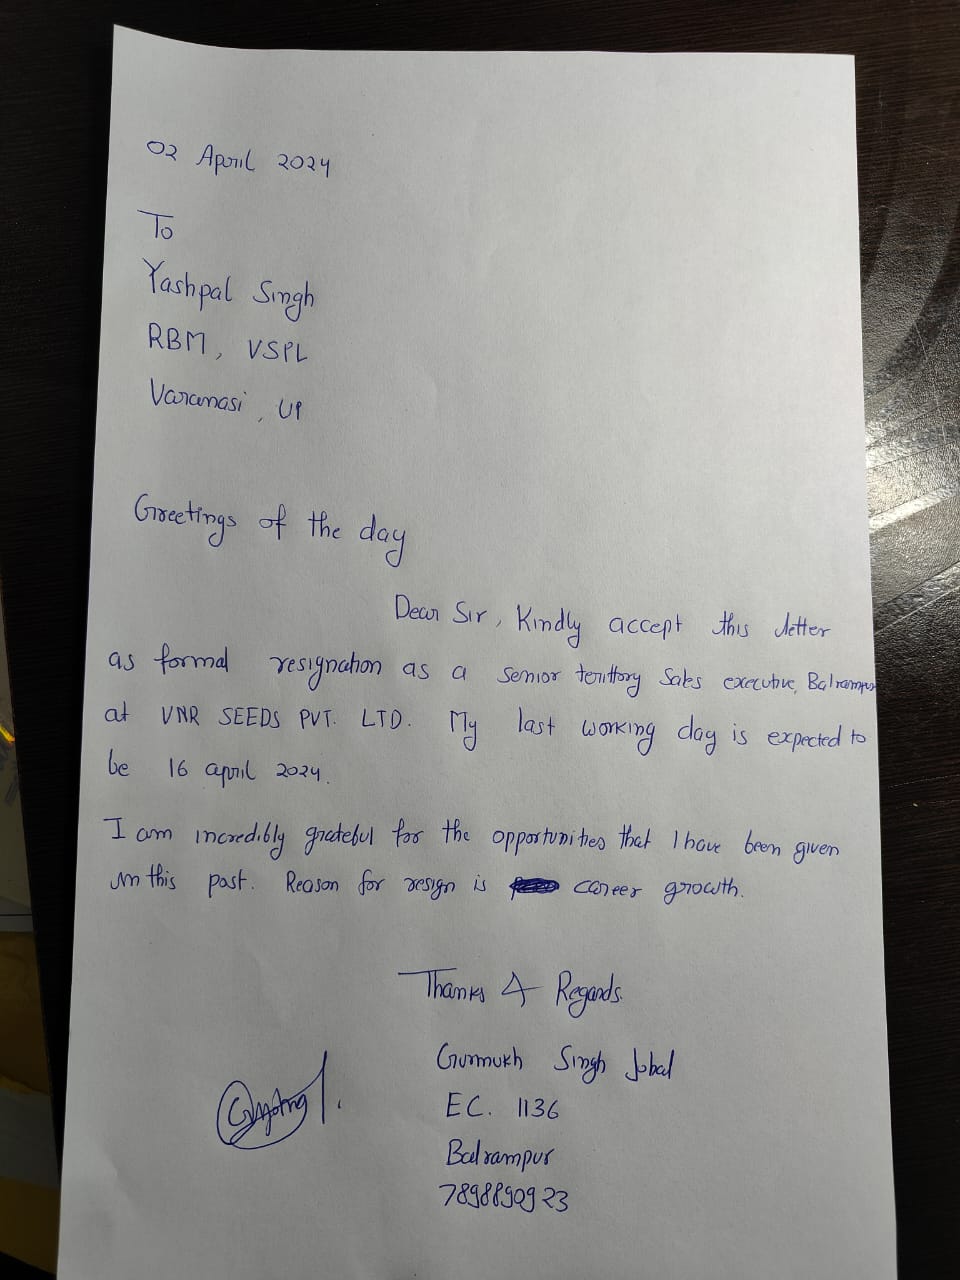 02 April 2024
To
Yashpal Singh
RBM, VSPL
Varanasi, UP
Greetings of the day
Dear Sir, Kindly accept this letter
as formal resignation as a senior territory Sales executive, Balrampur
at VNR SEEDS PVT. LTD. My last working day is expected to
be 16 april 2024.
I am incredibly grateful for the opportunities that I have been given
in this past. Reason for resign is career growth.
Thanks & Regards.
Gurmukh Singh Jobal
EC. 1136
Balrampur
7898890923